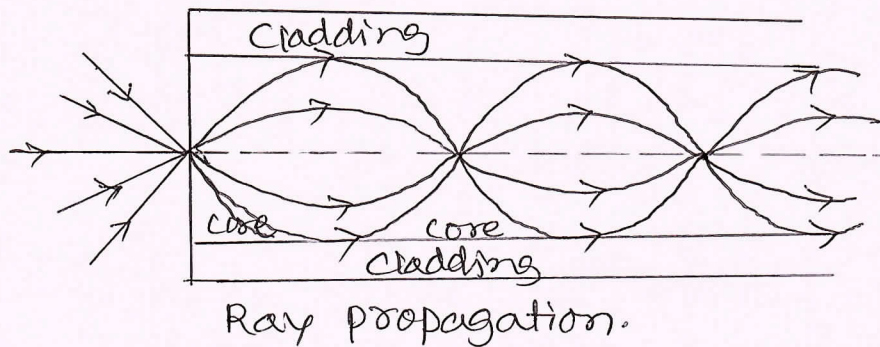 Cladding
core core
Cladding
Ray propagation.